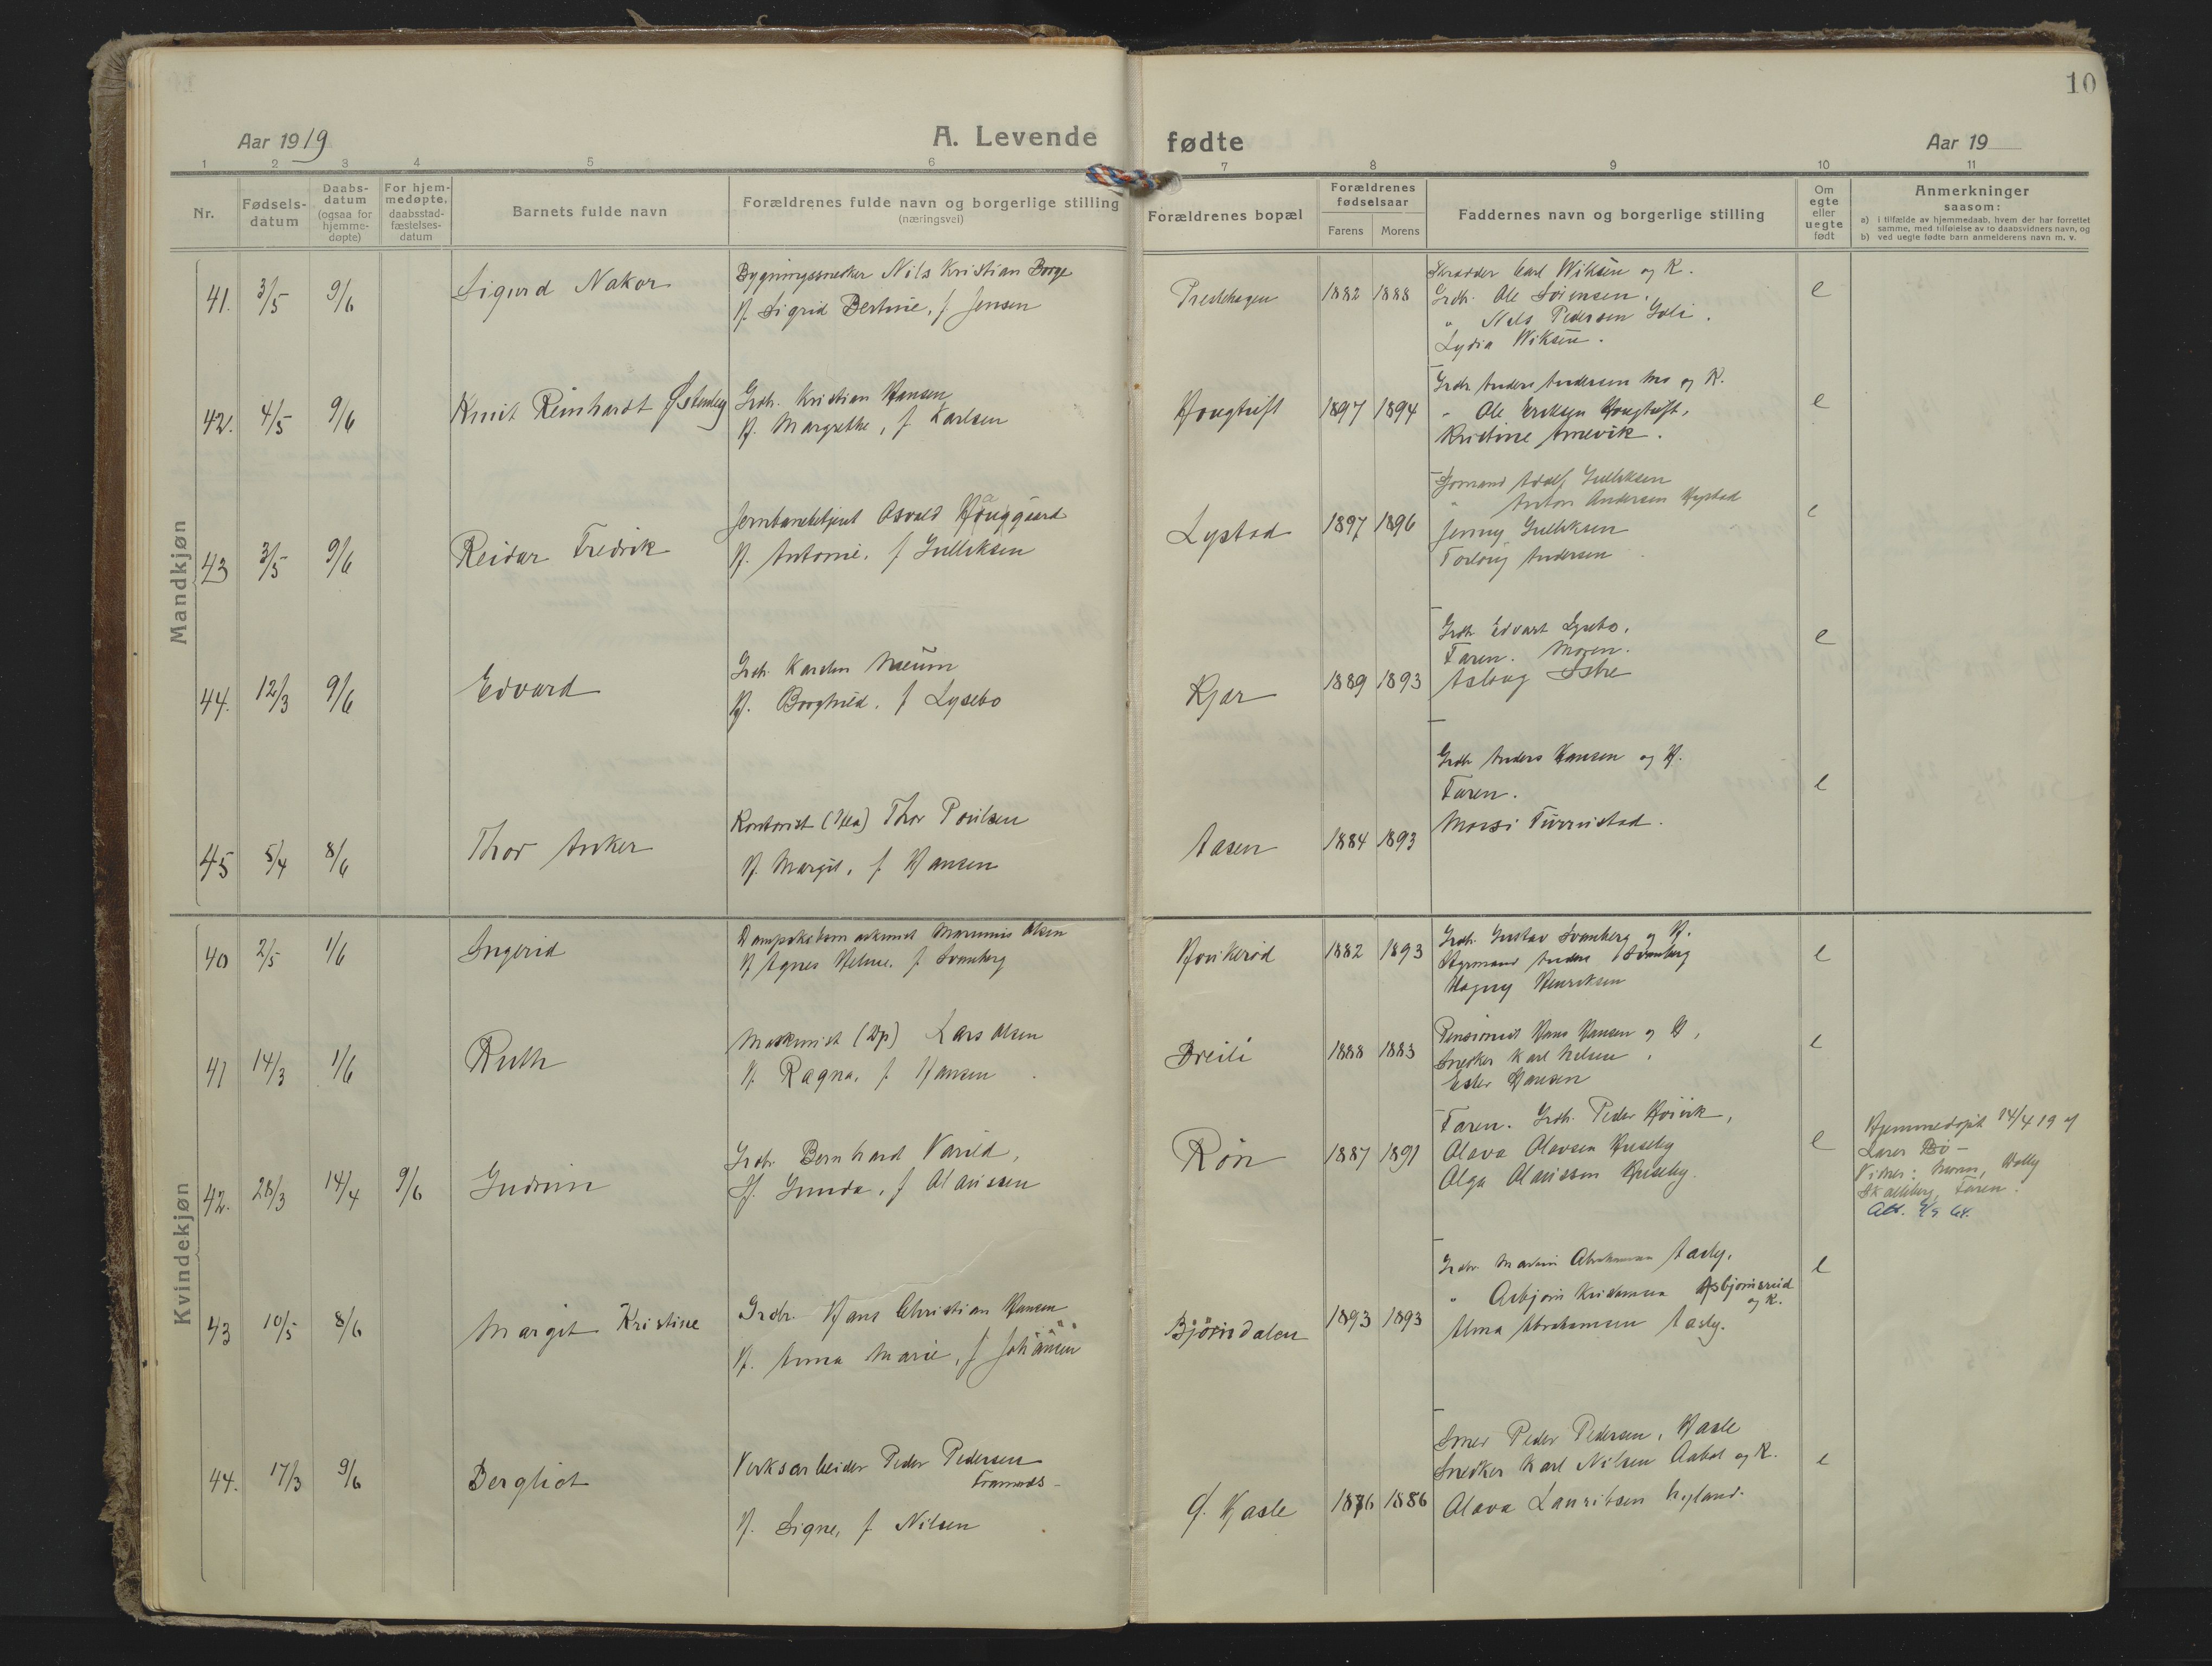 10
Aar 1919
A. Levende
fødte
Aar 19
1 2 3 4 5 6 7 8 9 10 11
Nr.
Fødsels-
datum
Daabs-
datum
(ogsaa for
hjemme-
døpte)
For hjem-
medøpte,
daabsstad-
fæstelses-
datum
Barnets fulde navn
Forældrenes fulde navn og borgerlige stilling
(næringsvei)
Forældrenes bopæl
Forældrenes
fødselsaar
Farens Morens
Faddernes navn og borgerlige stilling
Om
egte
eller
uegte
født
Anmerkninger
saasom:
a) i tilfælde av hjemmedaab, hvem der har forrettet
samme, med tilføielse av to daabsvidners navn, og
b) ved uegte fødte barn anmelderens navn m. v.
Mandkjøn
41. 3/5 9/6 Sigurd Nakor
Bygningssnedker Nils Kristian Borge
H. Sigrid Bertine, f. Jensen
Prestehagen 1882 1888
Skrædder Carl Wiksén og K.
Grdbr. Ole Sörensen.
" Nils Pedersen Goli.
Lydia Wiksén.
e
42. 4/5 9/6 Knut Reinhardt Østenby
Grdbr. Kristian Hansen
H. Margrethe, f Karlsen
Hougtuft 1897 1894
Grdbr Anders Andersen Mo og K.
" Ole Eriksen Hougtuft,
Kristine Arnevik.
e
43 3/5 9/6 Reidar Fredrik
Jernbanebetjent Osvald Haugaard
H. Antonie, f Gulliksen
Lystad 1897 1896
Sjømand Adolf Gulliksen
" Anton Andersen Nystad
Jenny Gulliksen
Andersen
e
44. 12/3 9/6 Edvard
Grdbr. Karsten Næum
H. Borghild, f Lysebo
Kjær 1889 1893
Grdbr Edvart Lysebo,
Faren. Moren.
Aslaug
e
45 5/4 8/6 Thor Anker
Kontorist Thor Poulsen
H. Margit, f Hansen
Aasen 1884 1893
Grdbr Anders Hansen og H.
Faren.
Mossi
e
Kvindekjøn
40 2/5 1/6 Ingerid
Dampskibsmaskinist Marinius Olsen
H Agnes Helene, f. Svanberg
Hovikerød 1882 1893
Grdbr. Gustav Svanberg og H.
Styrmand Anders Svanberg
Magny Henriksen
e
41 14/3 1/6 Ruth
Maskinist (Dp) Lars Olsen
H. Ragna, f. Hansen
Breili 1888 1883
Pensionist Hans Hansen og H,
Snedker Karl Nilsen,
Ester Hansen
e
42. 28/3 14/4 9/6 Gudrun
Grdbr Bernhard Varild,
H. Gunda, f Olaussen
Røn 1887 1891
Faren. Grdbr. Peder Høivik,
Olava Olavsen Huseby
Olga Olaussen Huseby.
e
Hjemmedøpt 14/4 19 af
Lærer Bø -
Vidner: Moren, Holly
Skalleberg, Faren.
Att. 4/9 64.
43 10/5 8/6 Margit Kristine
Grdbr. Hans Christian Hansen
H. Anna Marie, f Johansen
Björnsdalen 1893 1893
Grdbr. Martin Abrahamsen Aasly.
" Asbjørn Kristensen Asbjørnsrud
og K.
Alma Abrahamsen Aasly.
e
44. 17/3 9/6 Bergliot
Verksarbeider Peder Pedersen
Framnæs -
H. Signe, f. Nilsen
G. Hasle 1876 1886
Smed Peder Pedersen, Hasle
Snedker Karl Nilsen Aabol og K.
Olava Lauritsen Nyland.
e